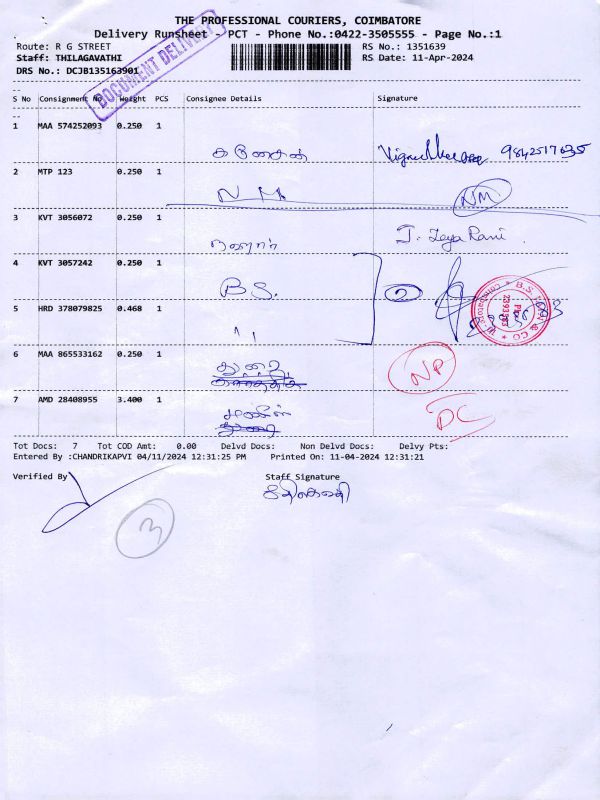 THE PROFESSIONAL COURIERS, COIMBATORE
Delivery Runsheet - PCT - Phone No.:0422-3505555 - Page No.:1
Route: R G STREET RS No.: 1351639
Staff: THILAGAVATHI RS Date: 11-Apr-2024
DRS No.: DCJB135163901
DOCUMENT DELIVERY
S No Consignment No Weight PCS Consignee Details Signature
1 MAA 574252093 0.250 1 9842517635
2 MTP 123 0.250 1 NM NM
3 KVT 3056072 0.250 1 J. Jeya Rani
4 KVT 3057242 0.250 1 B.S. 2
5 HRD 378079825 0.468 1 "
6 MAA 865533162 0.250 1 NP
7 AMD 28408955 3.400 1 DC
Tot Docs: 7 Tot COD Amt: 0.00 Delvd Docs: Non Delvd Docs: Delvy Pts:
Entered By :CHANDRIKAPVI 04/11/2024 12:31:25 PM Printed On: 11-04-2024 12:31:21
Verified By Staff Signature
3